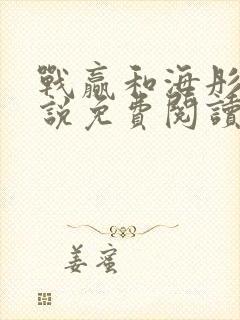 戰贏和海彤
說免費閱讀
姜蜜